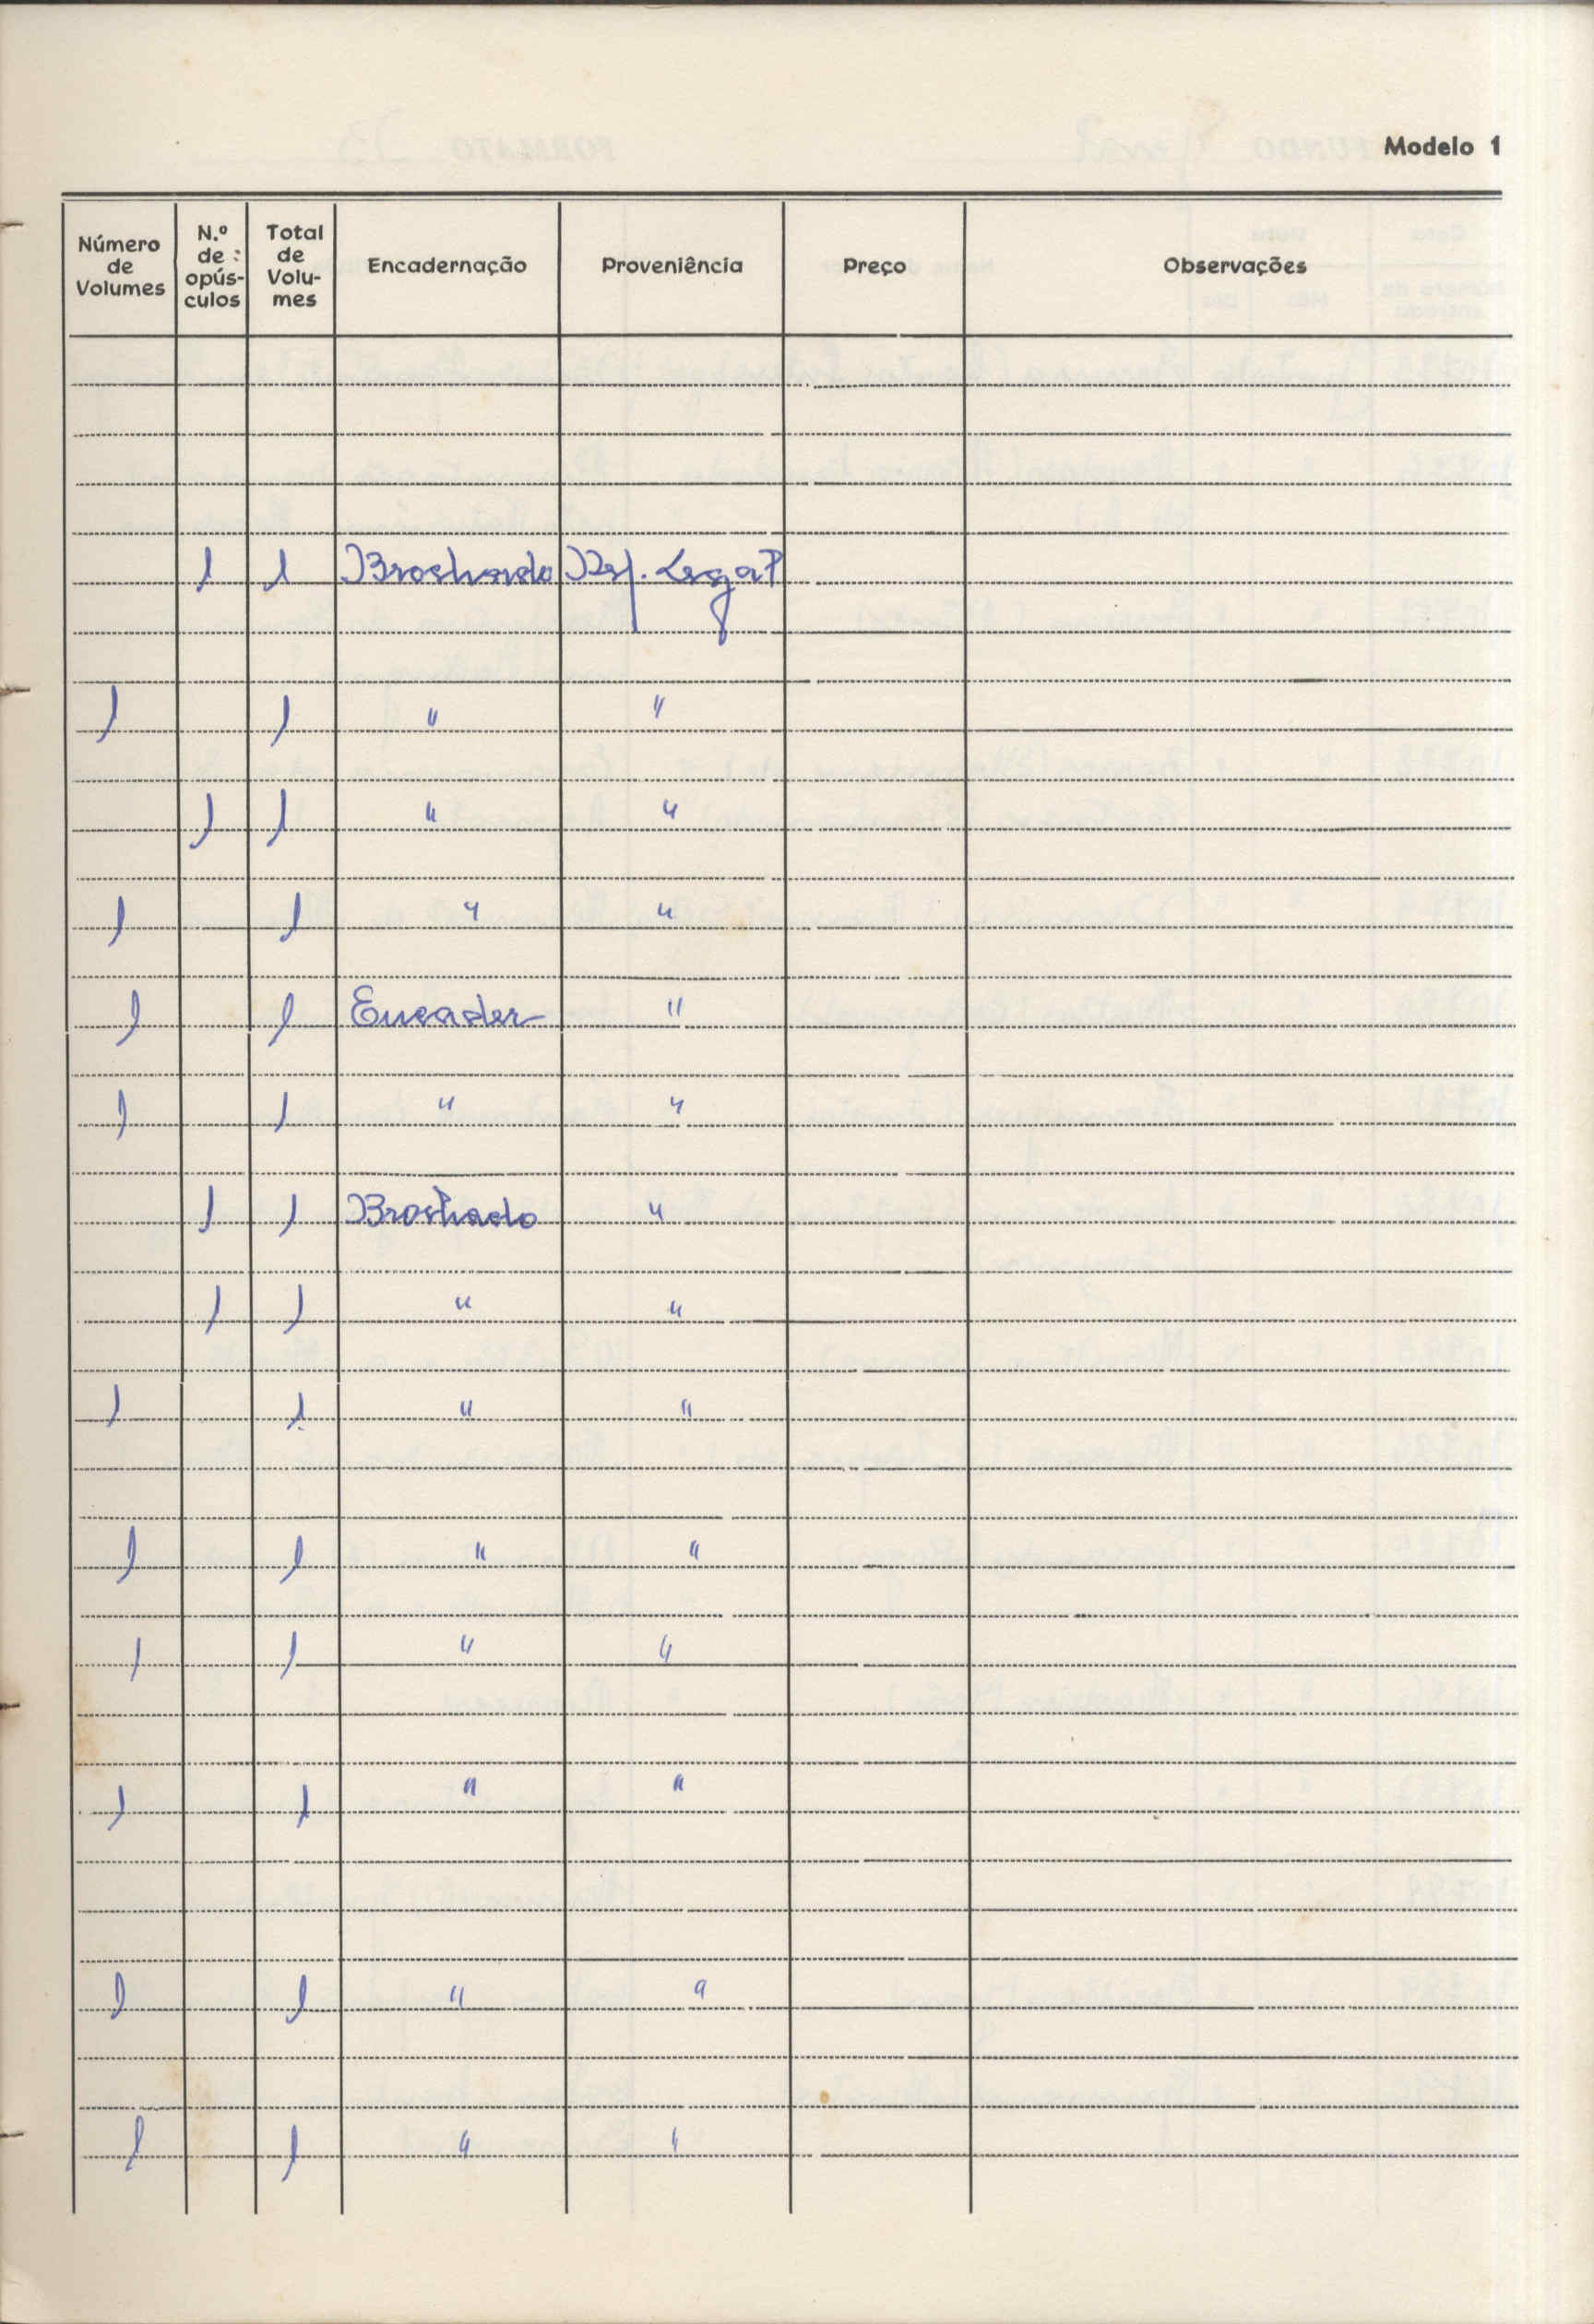 Modelo 1
Número de Volumes | N.º de opús-culos | Total de Volu-mes | Encadernação | Proveniência | Preço | Observações
1 1 Brochado Dep. Legal
1 1 " "
1 1 " "
1 1 " "
1 1 Encader "
1 1 " "
1 1 Brochado "
1 1 " "
1 1 " "
1 1 " "
1 1 " "
1 1 " "
1 1 " "
1 1 " "